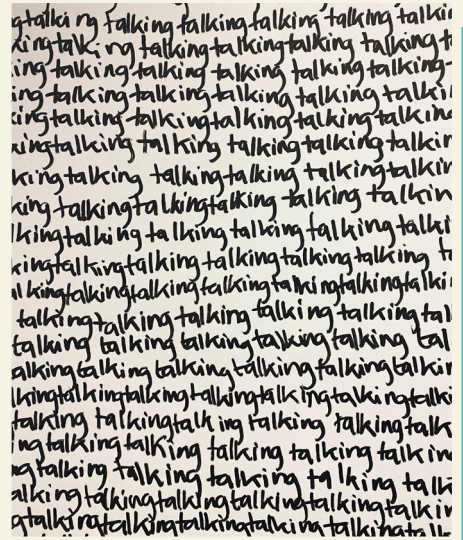 gtalking talking talkingtalkingtalkin
kingtalking talkingtalkingtalking talkingt
ing talking talking talking talkingtalking
ing talking talkingtalking talking talki
kingtalking talkingtalking talking talking
kingtalking talking talking talking talkin
king talking talking talking talking talkin
king talkingtalkingtalking talking talkin
lkingtalking talking talking talking talki
kingtalkingtalking talkingtalkingtalking t
lkingtalkingtalkingtalking talkingtalki
talkingtalking talking talking talkingtal
talking talking talkingtalkingtalking tal
alkingtalking talkingtalkingtalkingtalkin
lkingtalkingtalkingtalkingtalkingtalkingtalki
talking talkingtalking talking talkingtalk
ingtalkingtalking talking talking talkin
ngtalking talking talking talking talk
alkingtalkingtalkingtalkingtalkingtalkin
gtalkingtalkingtalkingtalkingtalkingtalk